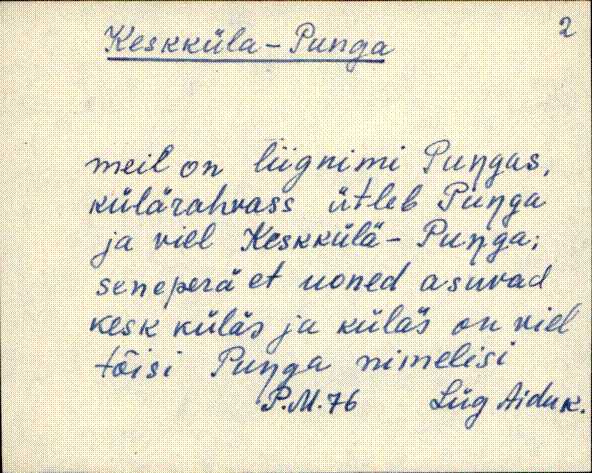 2
Keskküla - Punga
meil on liignimi Puŋgas,
külärahvass ütleb Puŋga
ja viel Keskkülä - Puŋga;
seneperä et uoned asuvad
kesk küläs ja küläs on viel
tõisi Puŋga nimelisi
P.M.76 Lüg Aiduk.